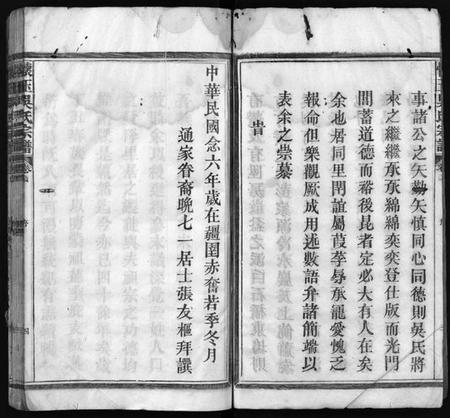 事諸公之矢勤矢慎同心同德則吳氏將
來之繼繼承承綿綿奕奕登仕版而光門
閭蓄道德而裕後昆者定必大有人在矣
余也居同里閈誼屬葭莩辱承寵愛愧乏
報命但樂觀厥成用述數語弁諸簡端以
表余之崇慕
旹
中華民國念六年歲在疆圉赤奮若季冬月
通家眷裔晩七一居士張友樞拜譔
吳氏宗譜